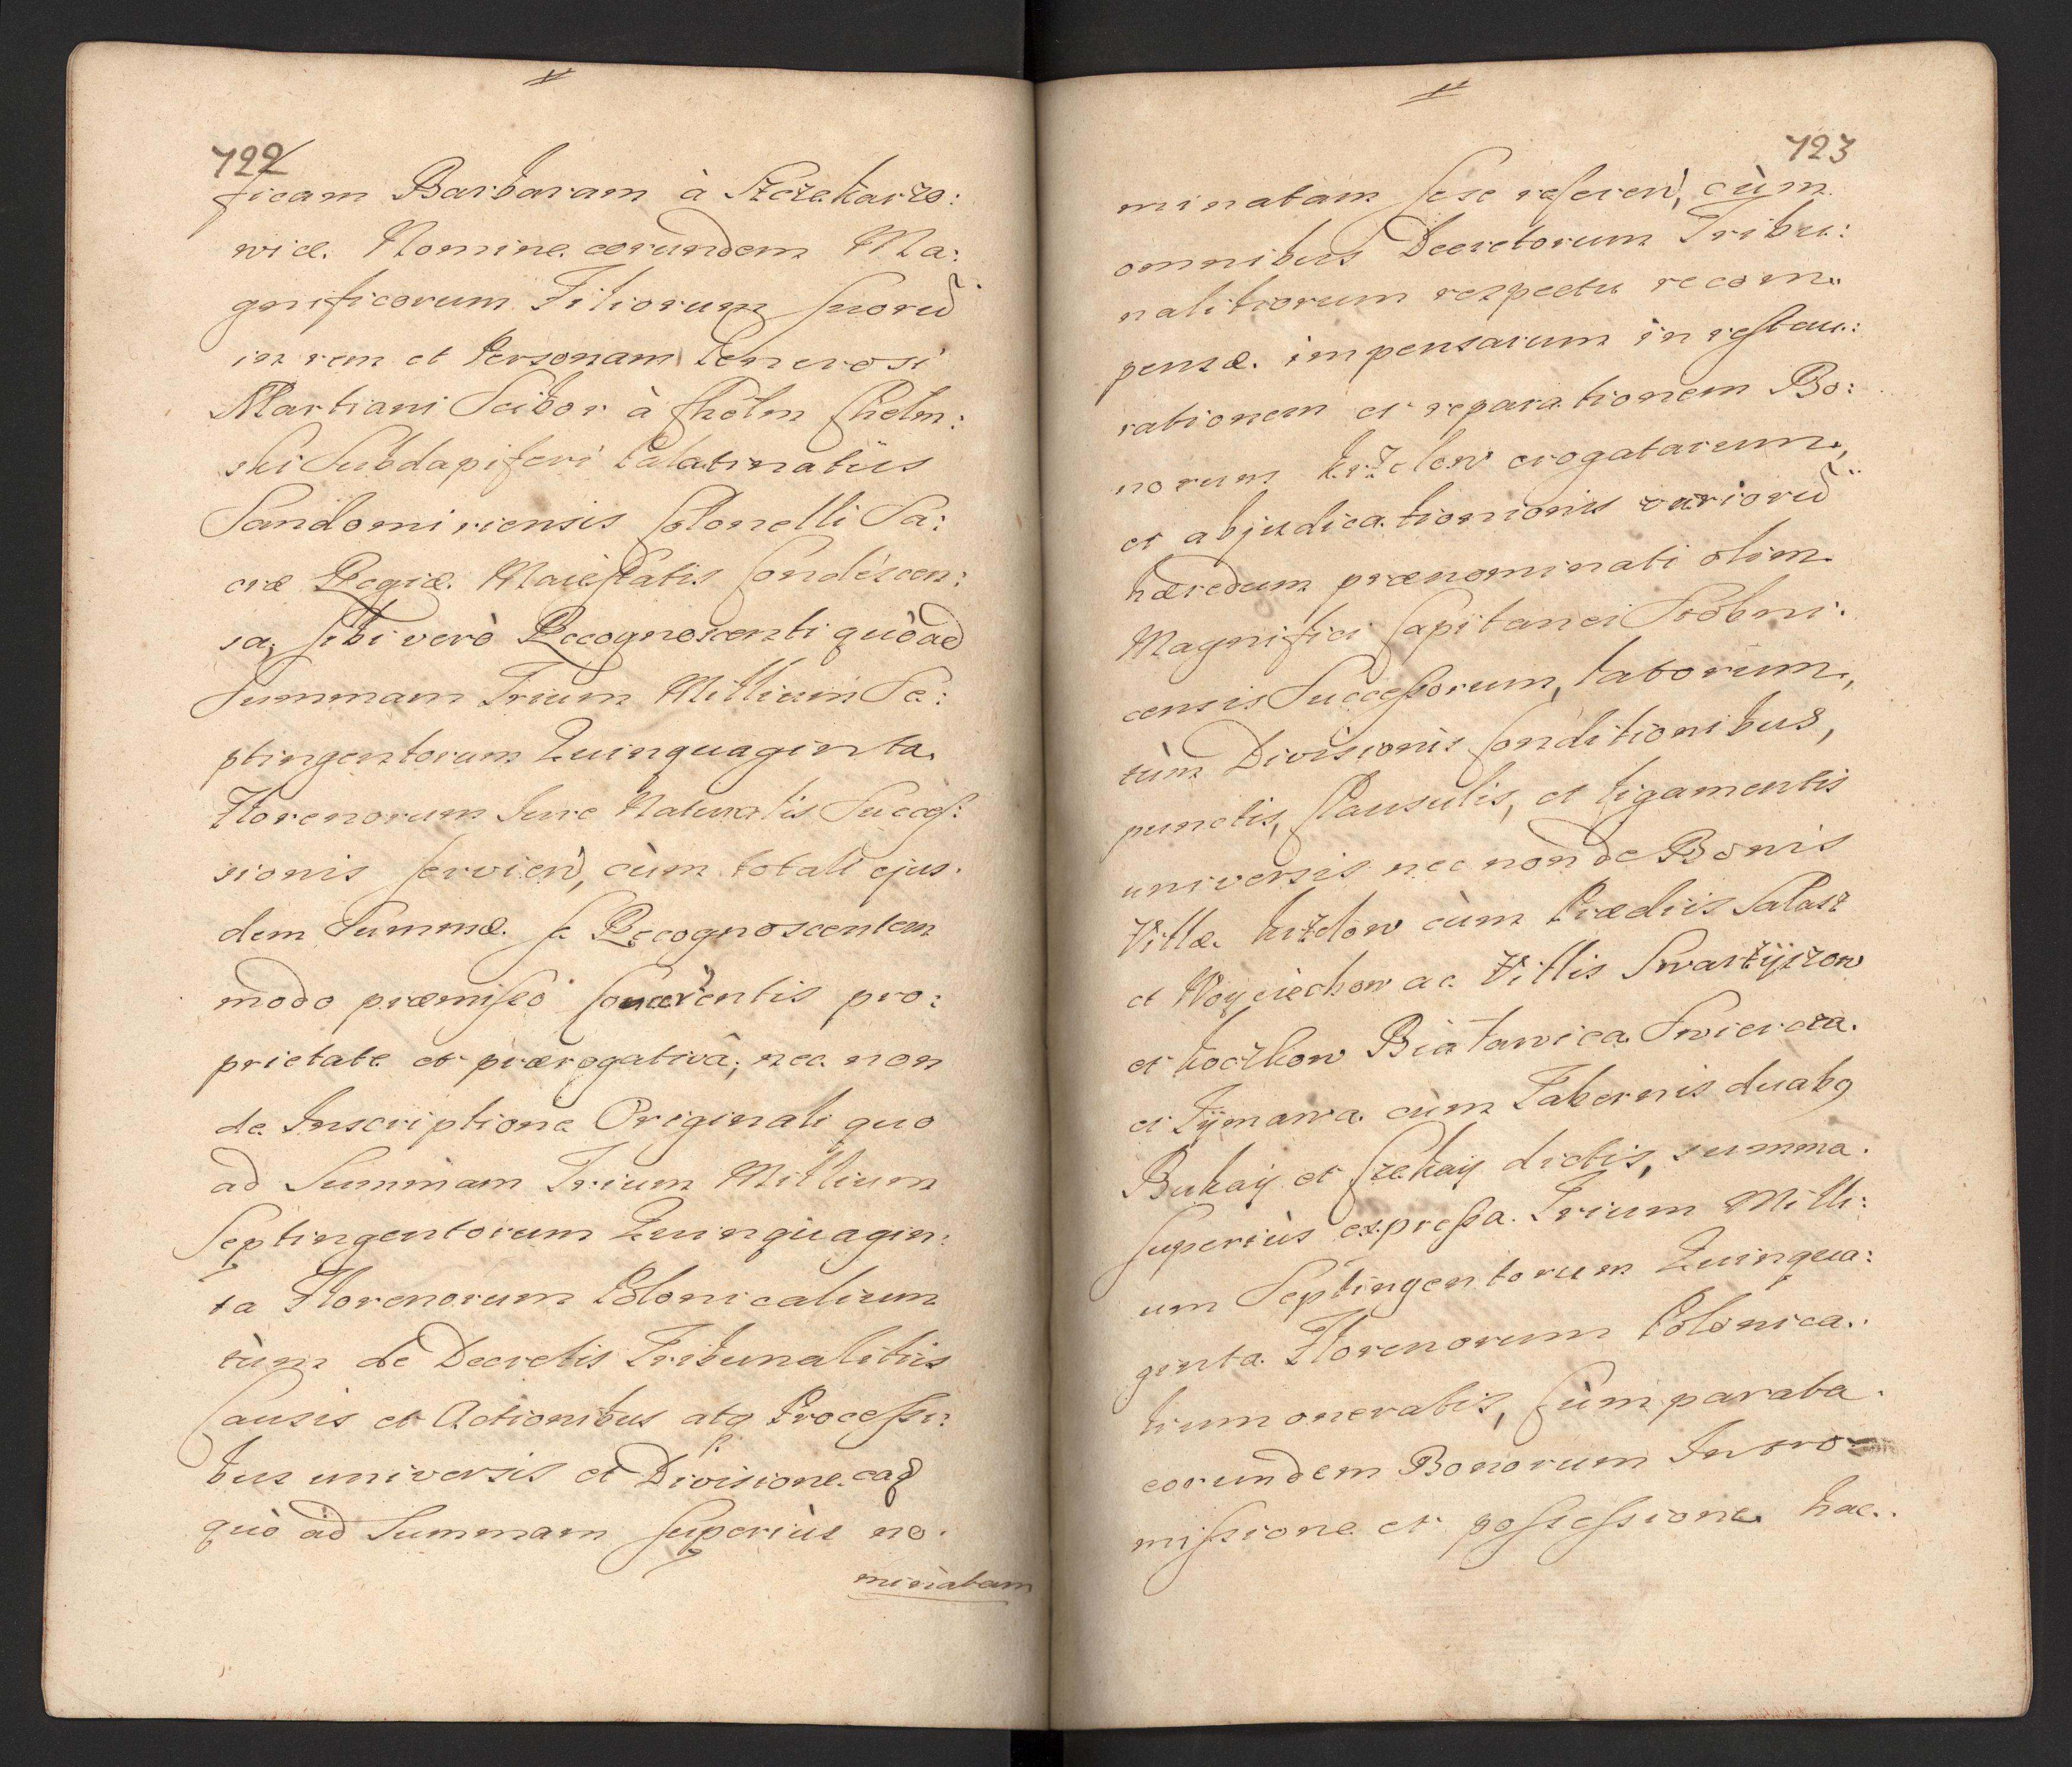 722
ficam Barbaram à Szczekarzo:
wicæ. Nomine eorundem Ma:
gnificorum Filiorum suorũ
in rem et Personam Generosi
Martiani Scibor à Chełm Chełm:
ski Subdapiferi Palatinatûs
Sandomiriensis Colonelli Sa:
cræ Regiæ Maiestatis Condescen:
sa, sibi verò Recognoscenti quòad
Summam Trium Millium Se:
ptingentorum Quinquaginta
Florenorum Jure Naturalis Succes:
sionis servien̄, cùm totali ejus.
dem Summæ se Recognoscentem
modo præmisso concernentis pro:
prietate et prærogativâ; nec non
de Inscriptione Originali quo
ad Summam Trium Millium
Septingentorum Quinquagin:
ta Florenorum Polonicalium
tùm de Decretis Tribunalitiis
Causis et Actionibus atq Processi:
bus universis et Divisione eaq
quò ad Summam superiùs no.
minatam
723
minatam sese referen̄, cùm
omnibus Decretorum Tribu:
nalitiorum respectu recom:
pensæ impensarum in restau:
rationem et reparationem Bo:
norum Krzelow erogatarum,
et abjudicationionis variorũ
hæredum prænominati olim
Magnifici Capitanei Stobni.
censis Successorum, laborum,
tùm Divisionis Conditionibus,
punctis, Clausulis, et ligamentis
universis nec non de Bonis
Villæ Krzelow cùm Prædiis Sałasz
et Woyciechow ac Villis Swartyszow
et Koczkow Białawica Swiercza.
et Tÿmawa cùm Tabernis duabq
Bukaÿ et Czekaÿ dictis, summa.
superiùs expressa Trium Milli:
um Septingentorum Quinqua:
ginta Florenorum Polonica.
lium oneratis, Cùm parata.
eorundem Bonorum Intro
missione et possessione hac.